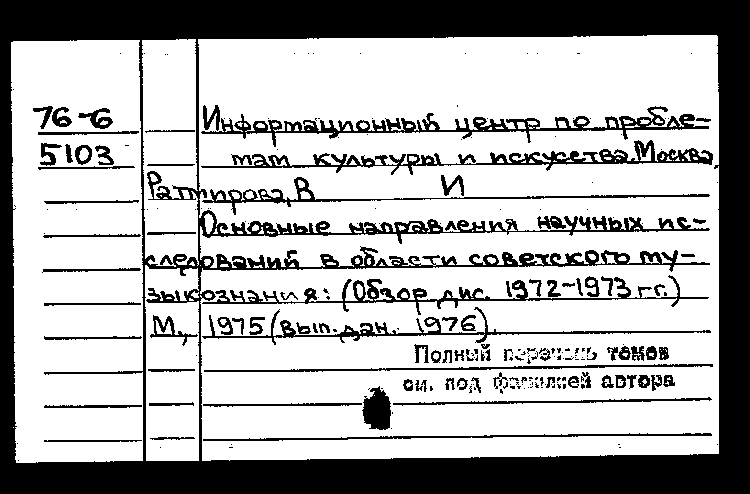 76-6
5103
Информационный центр по пробле-
мам культуры и искусства. Москва.
Ратмирова, В И
Основные направления научных ис-
следований в области советского му-
зыкознания: (Обзор дис. 1972-1973 гг.)
М., 1975 (вып. дан. 1976).
Полный перечень томов
см. под фамилией автора